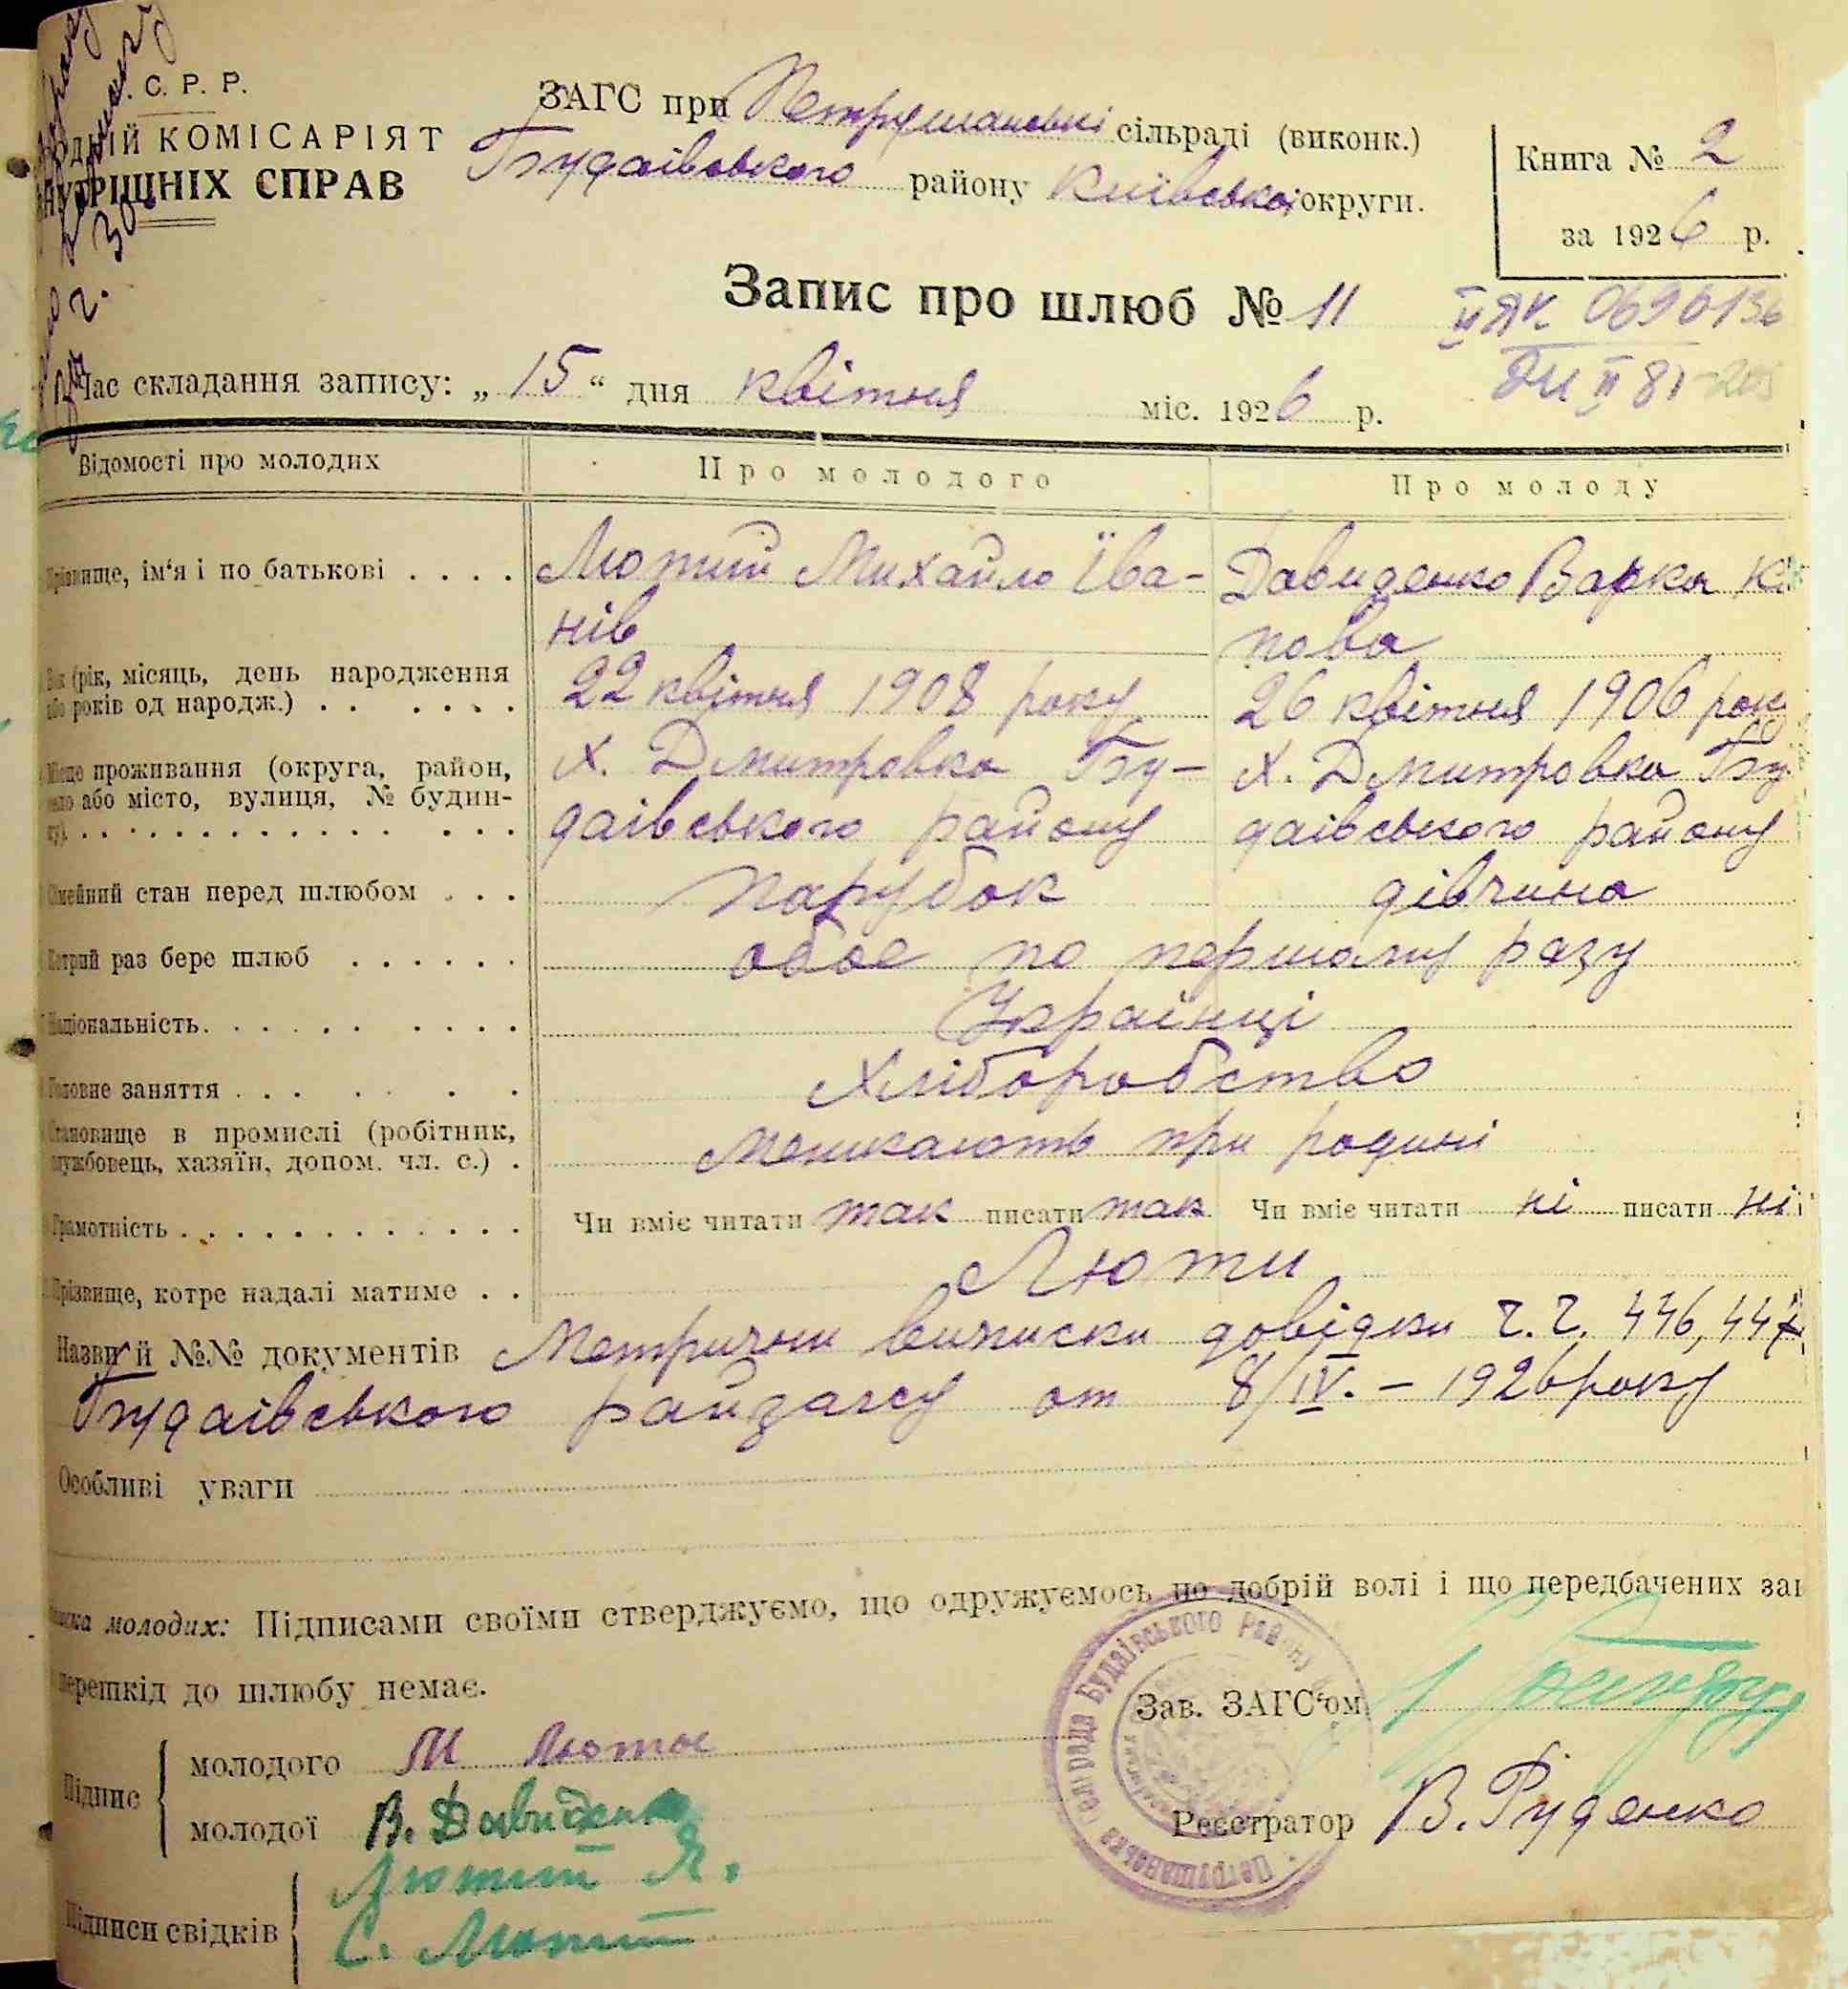 С. Р. Р.
КОМІСАРІЯТ
СПРАВ
ЗАГС при Петрушанській сільраді (виконк.)
Будаівського району Київської округи.
Книга № 2
за 1926 р.
Запис про шлюб № 11
II ЯК 0690136
Час складання запису: „15“ дня квітня міс. 1926 р.
Відомості про молодих
Про молодого
Про молоду
Прізвище, ім‘я і по батькові . . . .
Лютий Михайло Їва-
нів
Давиденко Варка
пова
Вік (рік, місяць, день народження
або років од народж.) . . . . . .
22 квітня 1908 року
26 квітня 1906 року
Місце проживання (округа, район,
село або місто, вулиця, № будин-
ку). . . . . . . . . . . . . . . .
х. Дмитровка Бу-
даівського району
х. Дмитровка Бу
даівського району
Сімейний стан перед шлюбом . . .
парубок
дівчина
Котрий раз бере шлюб . . . . . .
обое по першому разу
Національність. . . . . . . . . .
Українці
Головне заняття . . . . . .
Хліборобство
Становище в промислі (робітник,
службовець, хазяїн, допом. чл. с.) .
мешкають при родині
Грамотність . . . . . . . . . . . .
Чи вміє читати так писати так
Чи вміє читати ні писати ні
Прізвище, котре надалі матиме . .
Люти
Назви й №№ документів Метричні виписки довідки ч.ч. 446, 447
Будаівського райзагсу от 8/IV. – 1926 року
Особливі уваги
молодих: Підписами своїми стверджуємо, що одружуємось по добрій волі і що передбачених
перешкід до шлюбу немає.
Зав. ЗАГС‘ом
Підпис
молодого М Лютое
молодої В. Давиденко
Реєстратор В. Руденко
Підписи свідків
Лютий Я.
С. Лютий
Петрушанська сельрада Будаівського Району